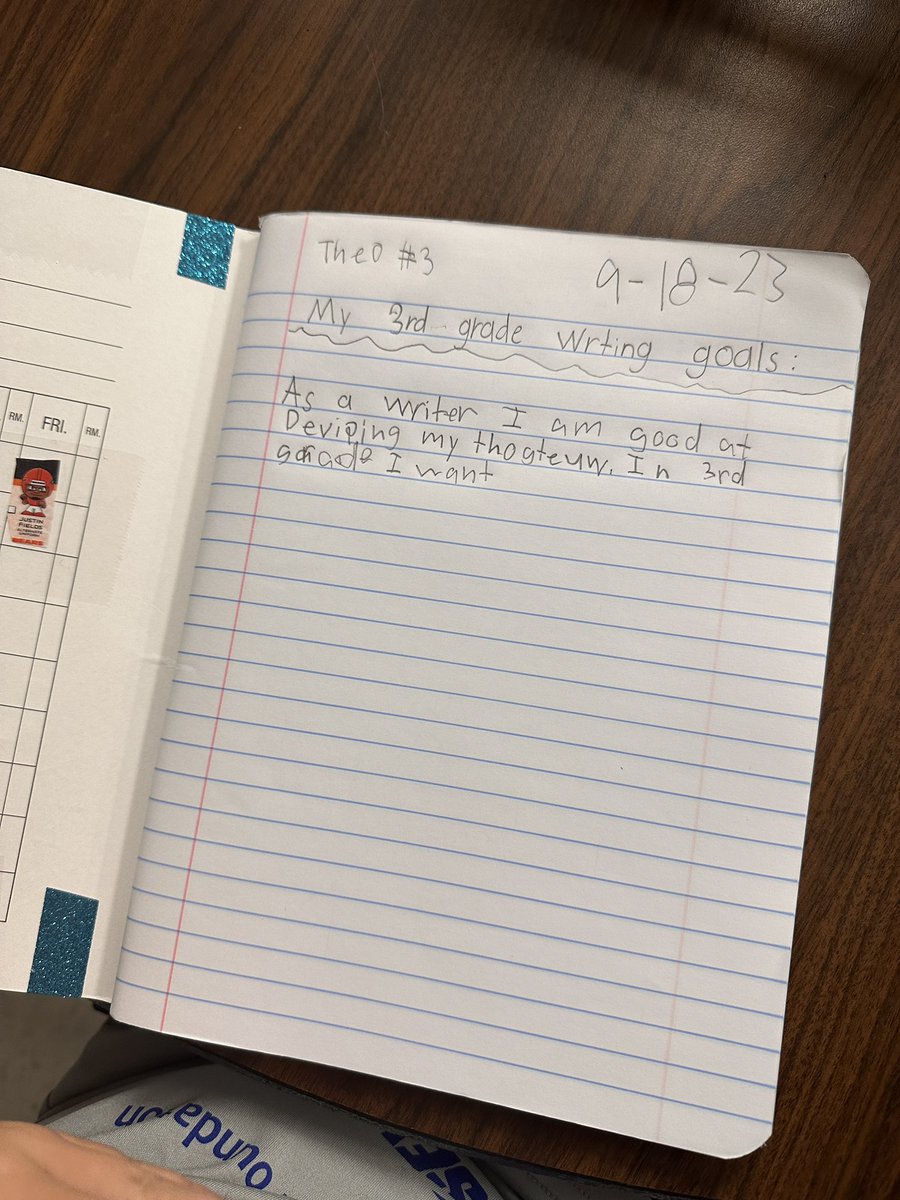 Theo #3
9-18-23
My 3rd grade Wrting goals:
As a writer I am good at
Deviping my thogteuw. In 3rd
garade I want
RM.
FRI.
RM.
JUSTIN
FIELDS
ALTERNATE
UNIFORM
BEARS